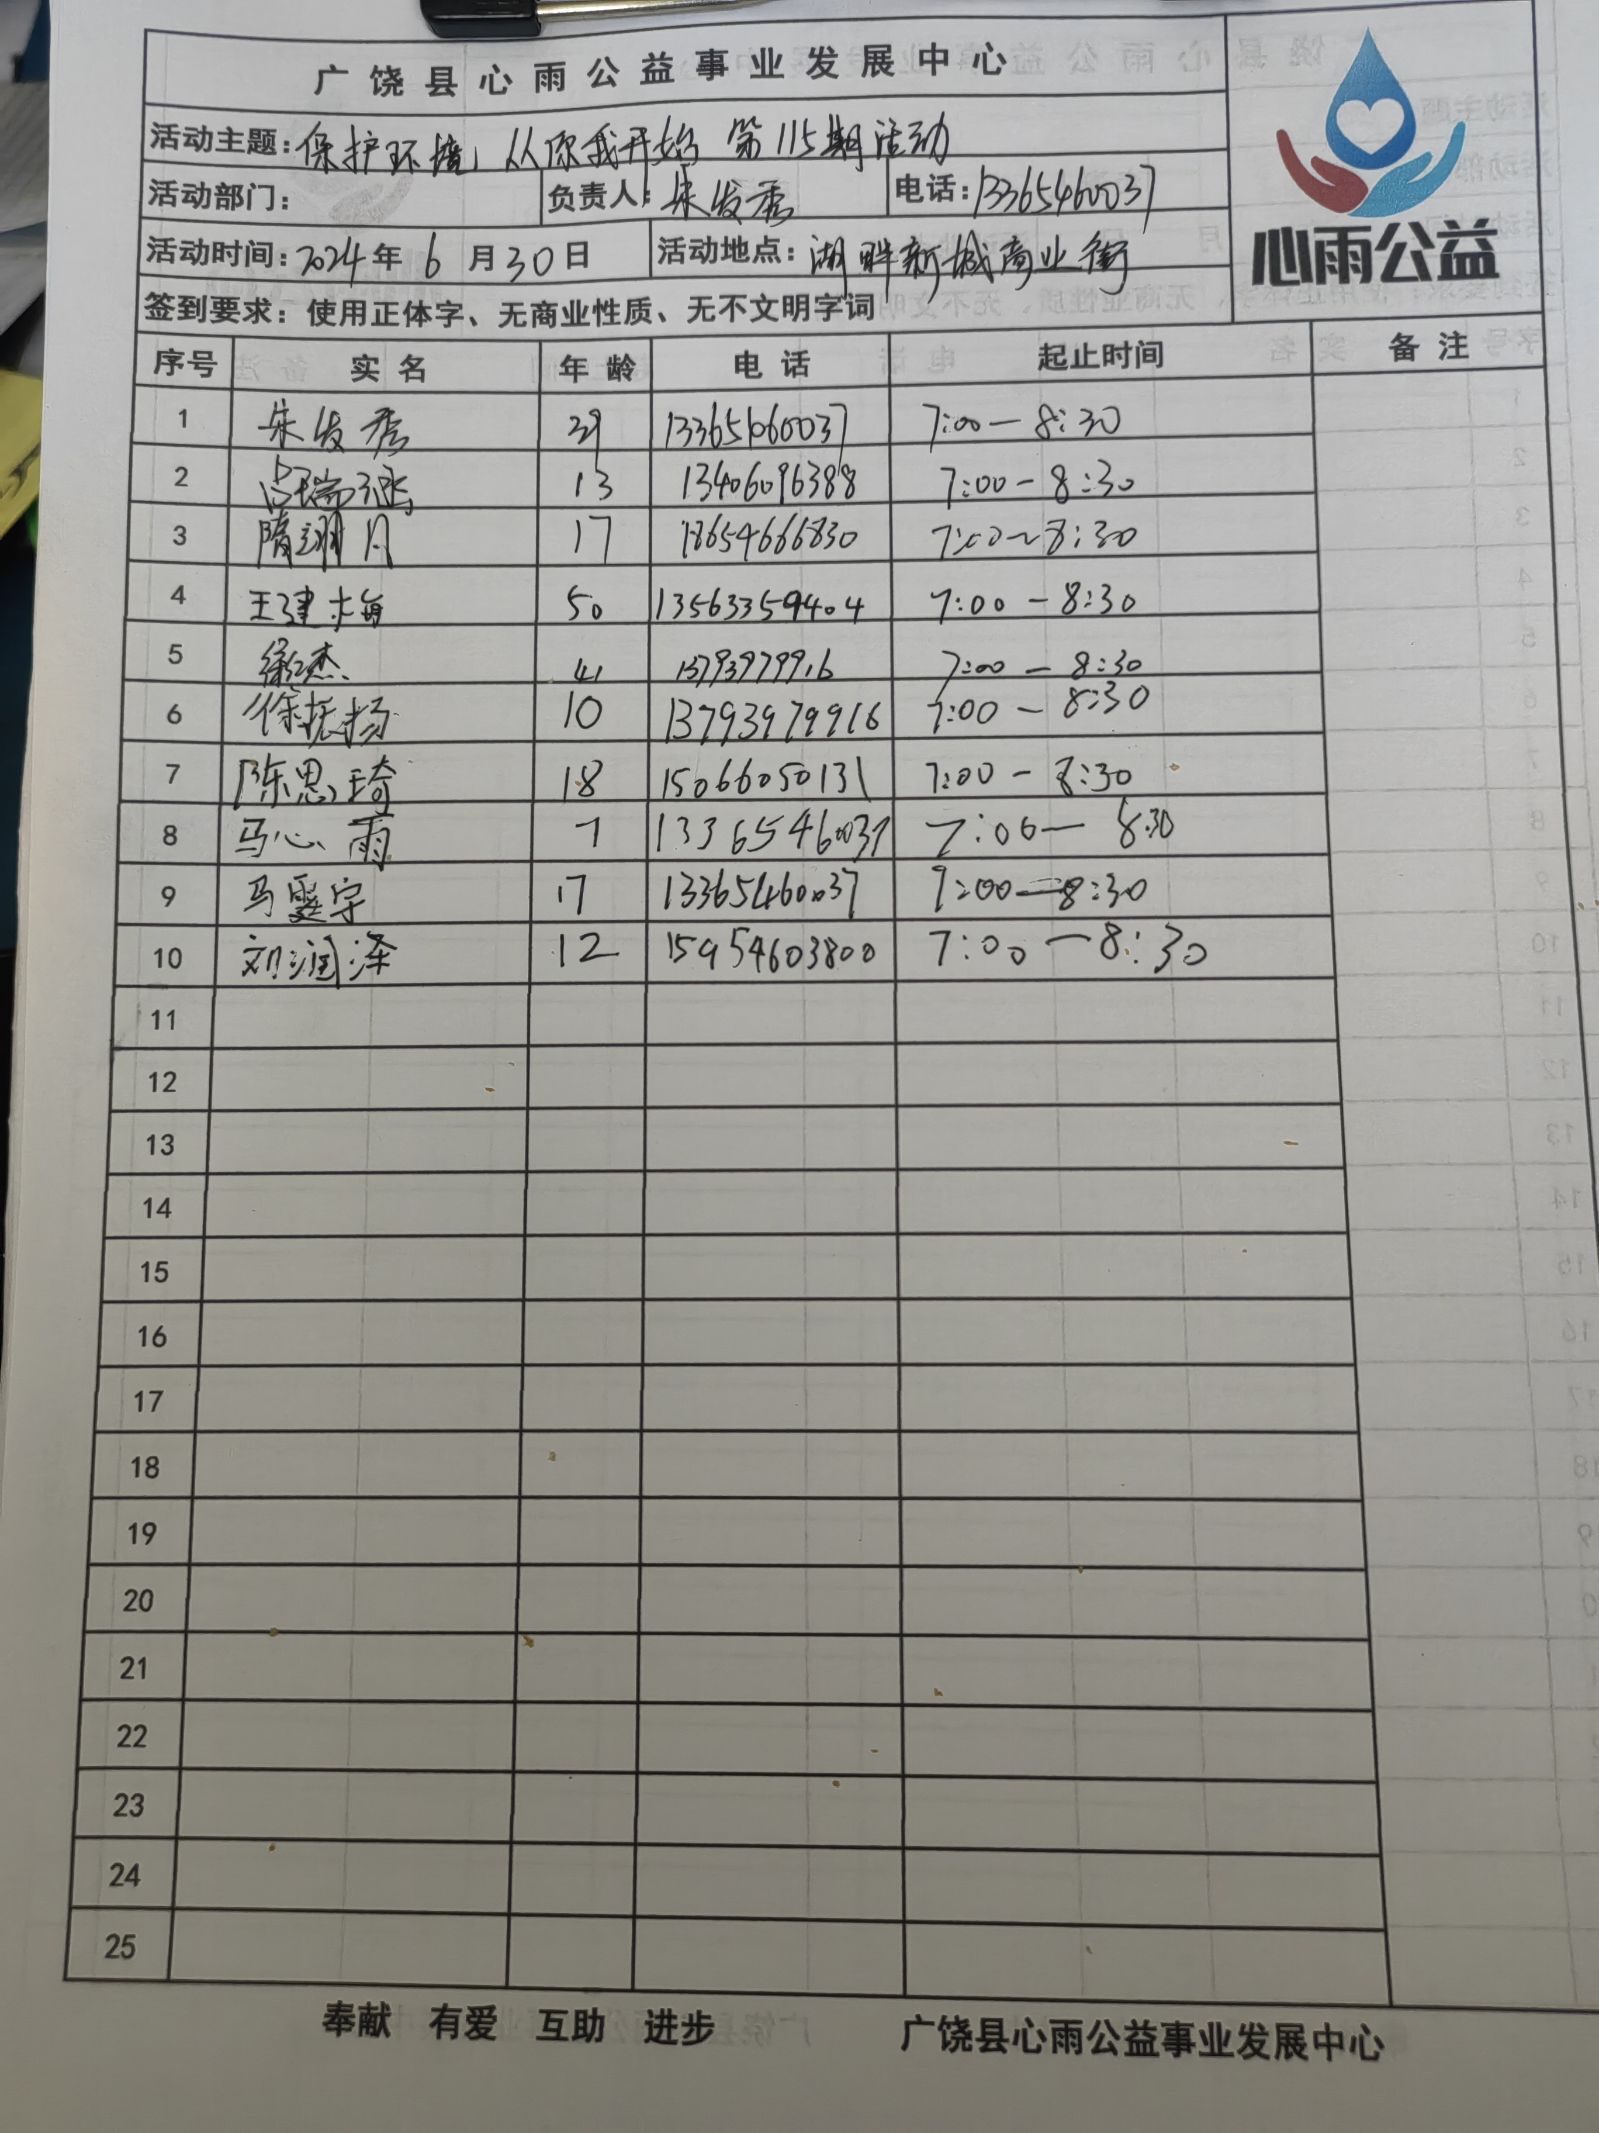 广饶县心雨公益事业发展中心
活动主题:保护环境,从你我开始 第115期活动
心雨公益
活动部门: 负责人:朱发秀 电话:13365460037
活动时间:2024年6月30日 活动地点:湖畔新城商业街
签到要求:使用正体字、无商业性质、无不文明字词
序号 实名 年龄 电话 起止时间 备注
1 朱发秀 39 13365460037 7:00-8:30
2 瑞涵 13 13406096388 7:00-8:30
3 隋翊月 17 18654666830 7:00~8:30
4 王建 50 13563359404 7:00-8:30
5 徐红杰 41 13793979916 7:00-8:30
6 徐振扬 10 13793979916 7:00-8:30
7 陈思琦 18 15066050131 7:00-8:30
8 马心雨 7 13365460037 7:00-8:30
9 马霆宇 17 13365460037 7:00-8:30
10 刘润泽 12 15954603800 7:00-8:30
11
12
13
14
15
16
17
18
19
20
21
22
23
24
25
奉献 有爱 互助 进步 广饶县心雨公益事业发展中心